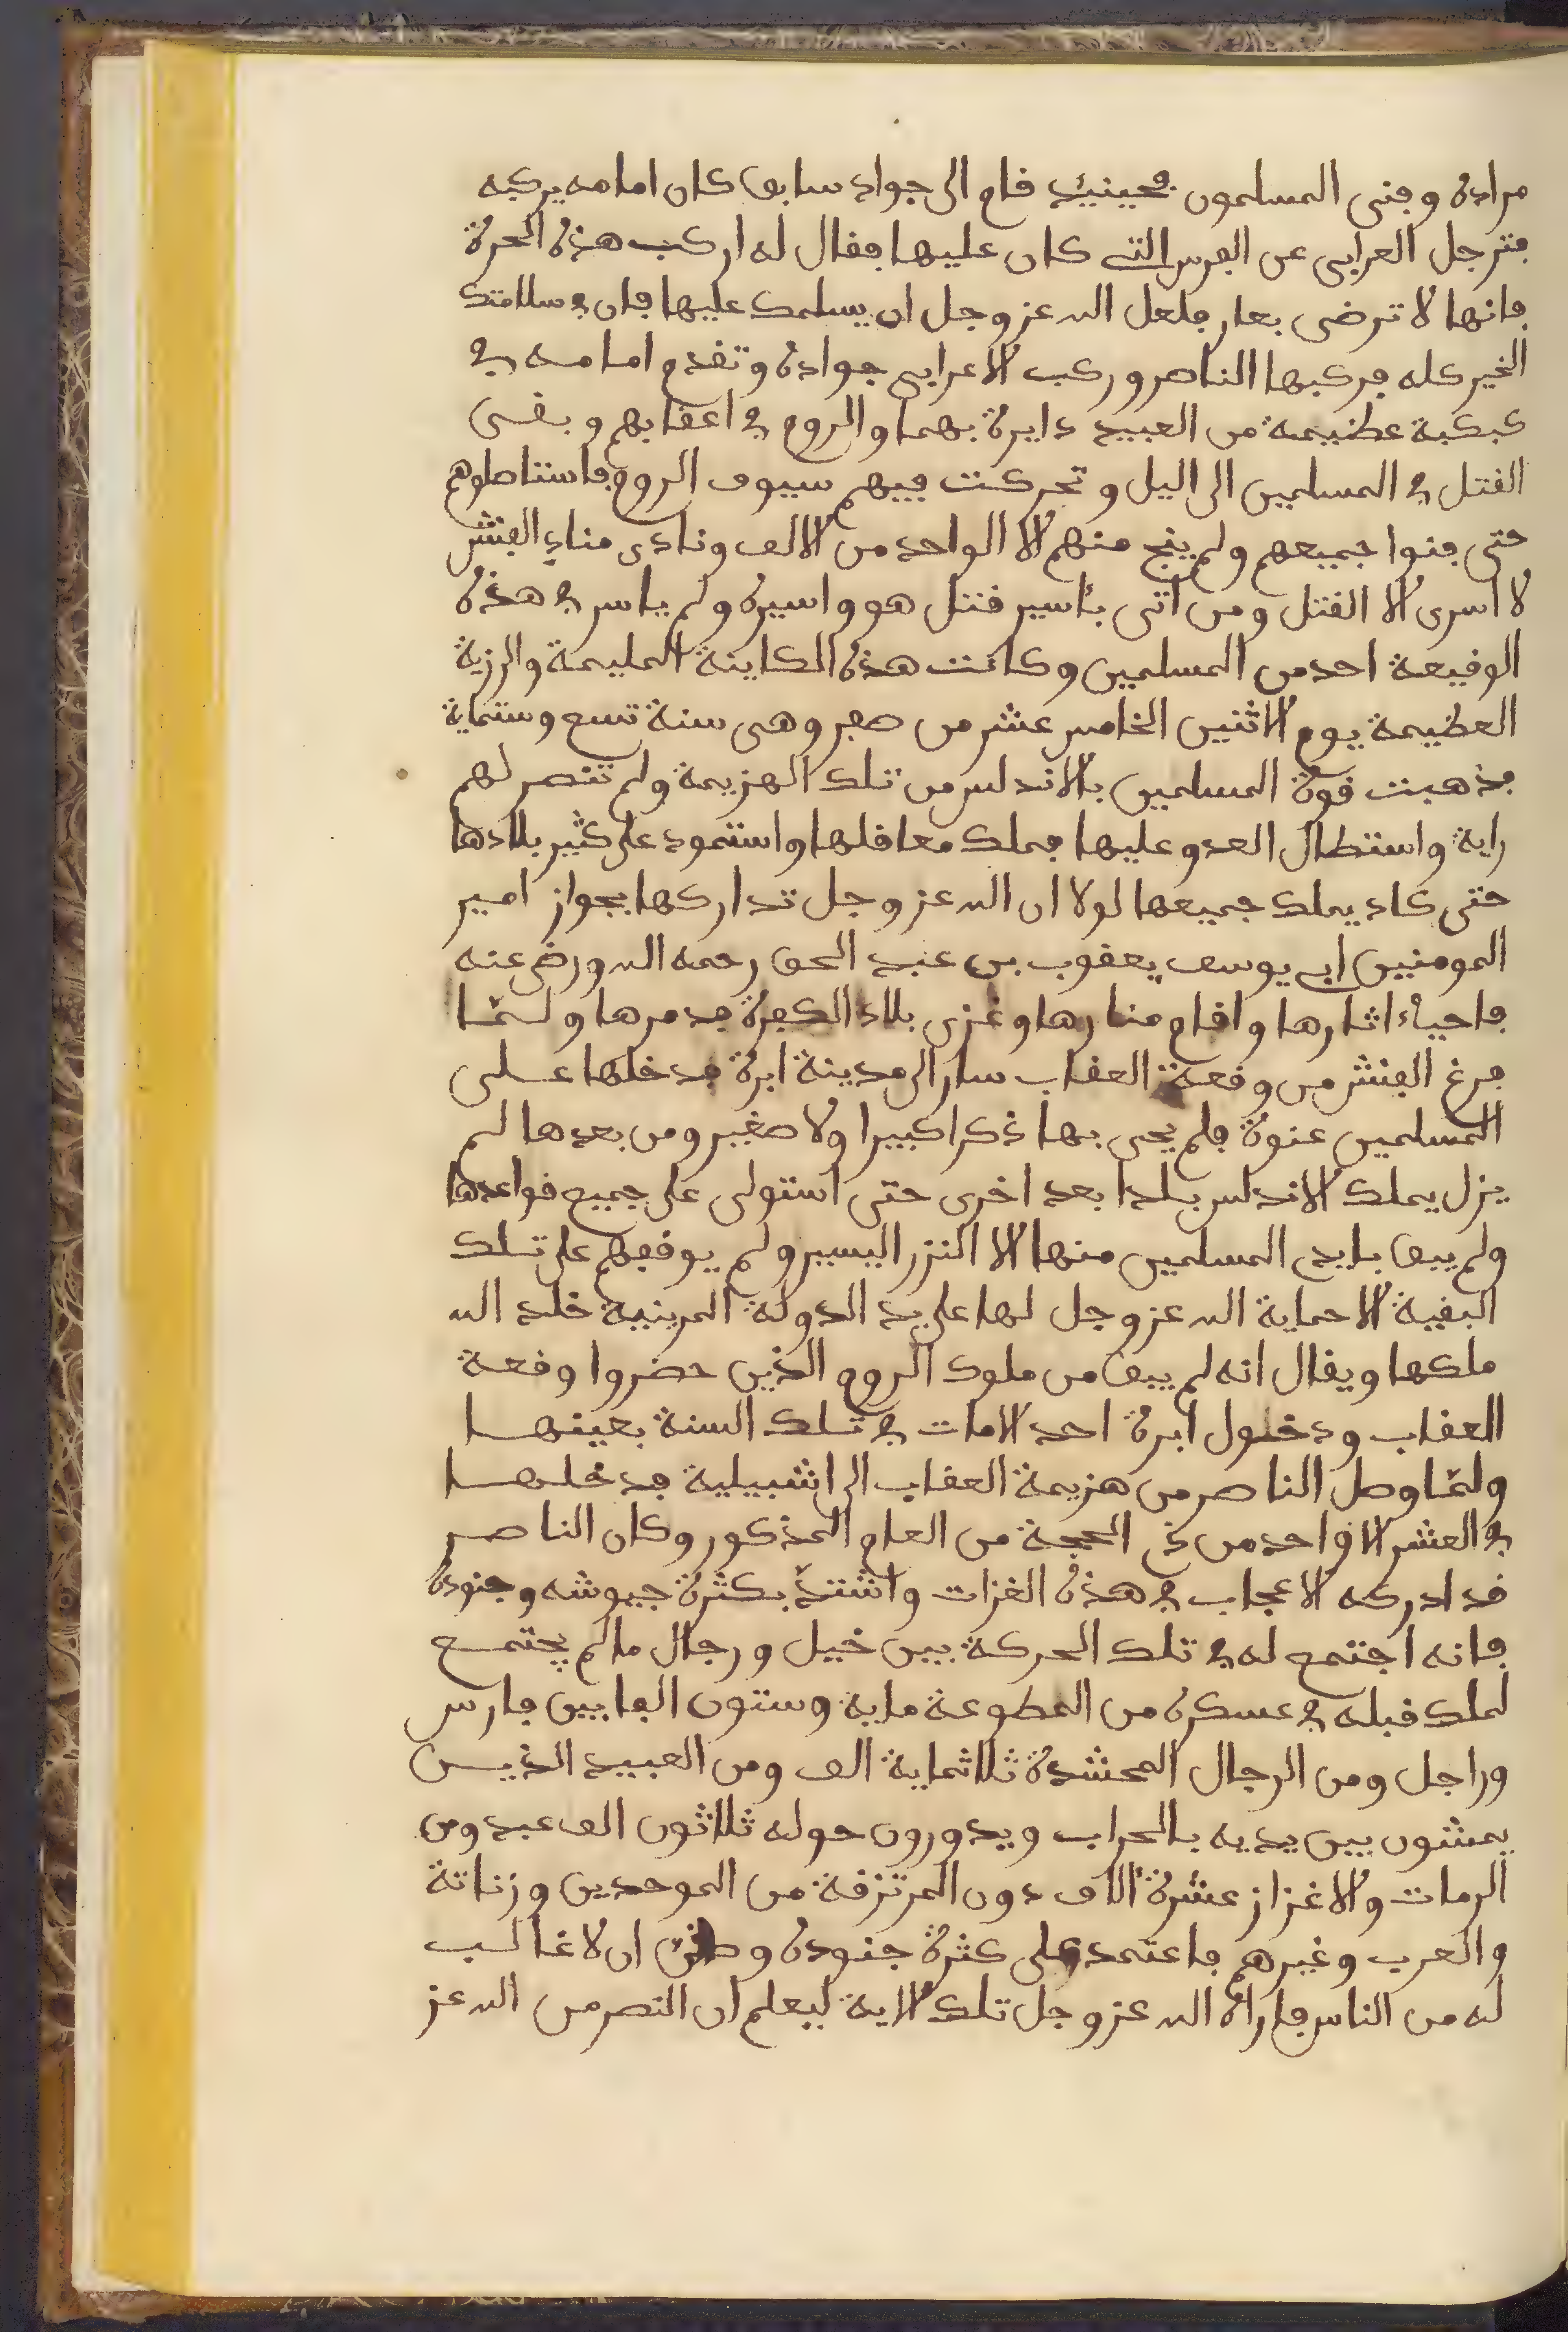 مراده وفنى المسلمون فحينئيذ قام الى جواد سابق كان امامه يركبه
فترجل العرابى عن الفرس التى كان عليها فقال له اركب هذه الحرة
فانها لا ترضى بعار فلعل الله عز وجل ان يسلمك عليها فان فى سلامتك
الخير كله فركبها الناصر وركب الاعرابى جواده وتقدم امامه فى
كبكبة عظيمة من العبيد دايرة بهما والروم فى اعقابهم وبقى
القتل فى المسلمين الى اليل وتحركت فيهم سيوف الروم فاستاصلوهم
حتى فنوا جميعهم ولم ينج منهم الا الواحد من الالف ونادى مناد الفنش
لا اسرى الا القتل ومن اتى باسير قتل هو واسيره ولم ياسر فى هذه
الوقيعة احد من المسلمين وكانت هذه الكاينة المليمة والرزية
العظيمة يوم الاثنين الخامس عشر من صفر وهى سنة تسع وستماية
فذهبت قوة المسلمين بالاندلس من تلك الهزيمة ولم تنصر لهم
راية واستطال العدو عليها فملك معاقلها واستحود على كثير بلادها
حتى كاد يملك جميعها لولا ان الله عز وجل تداركها بجواز امير
المومنين ابى يوسف يعقوب بن عبد الحق رحمه الله ورضى عنه
فاحياء اثارها واقام منارها وغزى بلاد الكفرة فدمرها ولمّا
فرغ الفنش من وقعة العقاب سار الى مدينة ابرة فدخلها على
المسلمين عنوة فلم يحى بها ذكرا كبيرا ولا صغير ومن بعدها لم
يزل يملك الاندلس بلدا بعد اخرى حتى استولى على جميع قواعدها
ولم يبق بايد المسلمين منها الا النزر اليسير ولم يوقفهم على تلك
البقية الا حماية الله عز وجل لها على يد الدولة المرينية خلد الله
ملكها ويقال انه لم يبق من ملوك الروم الذين حضروا وقعة
العقاب ودخلول ابرة احد الامات فى تلك السنة بعينها
ولمّا وصل الناصر من هزيمة العقاب الى اشبيلية فدخلها
فى العشر الاواحد من ذى الحجة من العام المذكور وكان الناصر
قد ادركه الاعجاب فى هذه الغزات واشتدّ بكثرة جيوشه وجنوده
فانه اجتمع له فى تلك الحركة بين خيل ورجال ما لم يجتمع
لملك قبله فى عسكره من المطوعة ماية وستون الفا بين فارس
وراجل ومن الرجال المحشدة ثلاثماية الف ومن العبيد الذيـن
يمشون بين يديه بالحراب ويدورون حوله ثلاثون الف عبد ومن
الرمات والاغزاز عشرة الاف دون المرتزقة من الموحدين وزناتة
والعرب وغيرهم فاعتمد على كثرة جنوده وظن ان لا غالب
له من الناس فاراه الله عز وجل تلك الاية ليعلم ان النصر من الله عز